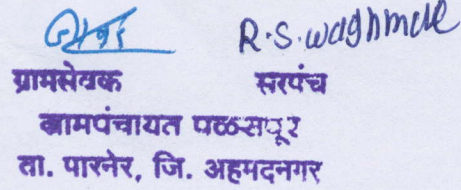 R.S. waghmare
ग्रामसेवक सरपंच
ग्रामपंचायत पळसपूर
ता. पारनेर, जि. अहमदनगर